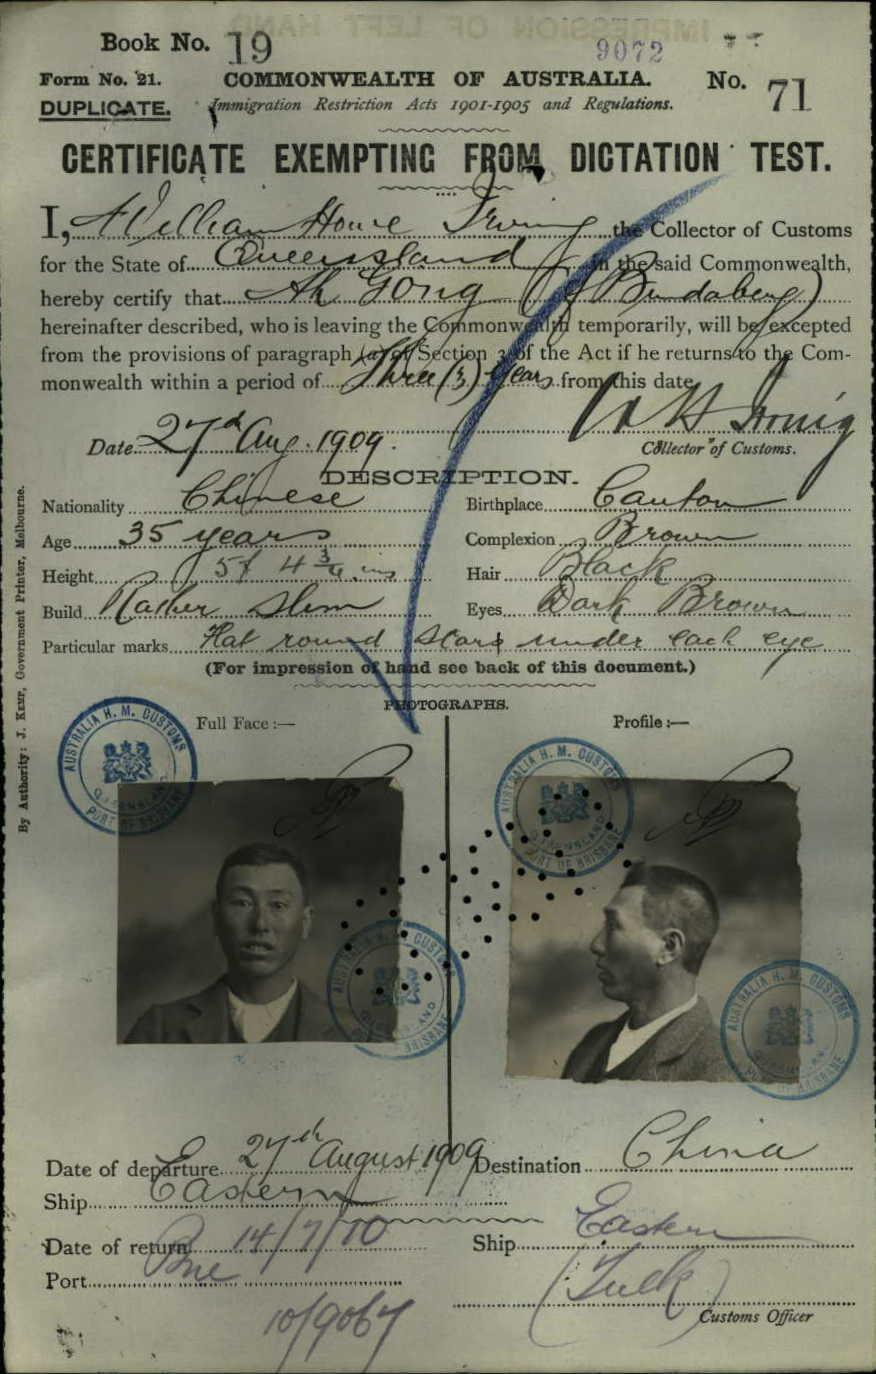 IMPRESSION OF LEFT HAND
Book No. 19
9072
Form No. 21. COMMONWEALTH OF AUSTRALIA. No. 71
DUPLICATE. Immigration Restriction Acts 1901-1905 and Regulations.
CERTIFICATE EXEMPTING FROM DICTATION TEST.
I, William Howe Irving the Collector of Customs
for the State of Queensland in the said Commonwealth,
hereby certify that Ah Gong (of Bundaberg)
hereinafter described, who is leaving the Commonwealth temporarily, will be excepted
from the provisions of paragraph (a) of Section 3 of the Act if he returns to the Com-
monwealth within a period of Three (3) Years from this date
Date 27th Aug. 1909. W H Irving
Collector of Customs.
DESCRIPTION.
Nationality Chinese Birthplace Canton
Age 35 years Complexion Brown
Height 5f 4 3/4 ins Hair Black
Build Rather Slim Eyes Dark Brown
Particular marks Flat round Scars under each eye
(For impression of hand see back of this document.)
PHOTOGRAPHS.
Full Face :— Profile :—
AUSTRALIA H. M. CUSTOMS
QUEENSLAND
PORT OF BRISBANE
AUSTRALIA H. M. CUSTOMS
QUEENSLAND
PORT OF BRISBANE
AUSTRALIA H. M. CUSTOMS
QUEENSLAND
PORT OF BRISBANE
AUSTRALIA H. M. CUSTOMS
QUEENSLAND
PORT OF BRISBANE
Date of departure 27th August 1909 Destination China
Ship Eastern
Date of return 14/7/10 Ship Eastern
Port Bne
10/9067
Customs Officer
By Authority: J. KEMP, Government Printer, Melbourne.